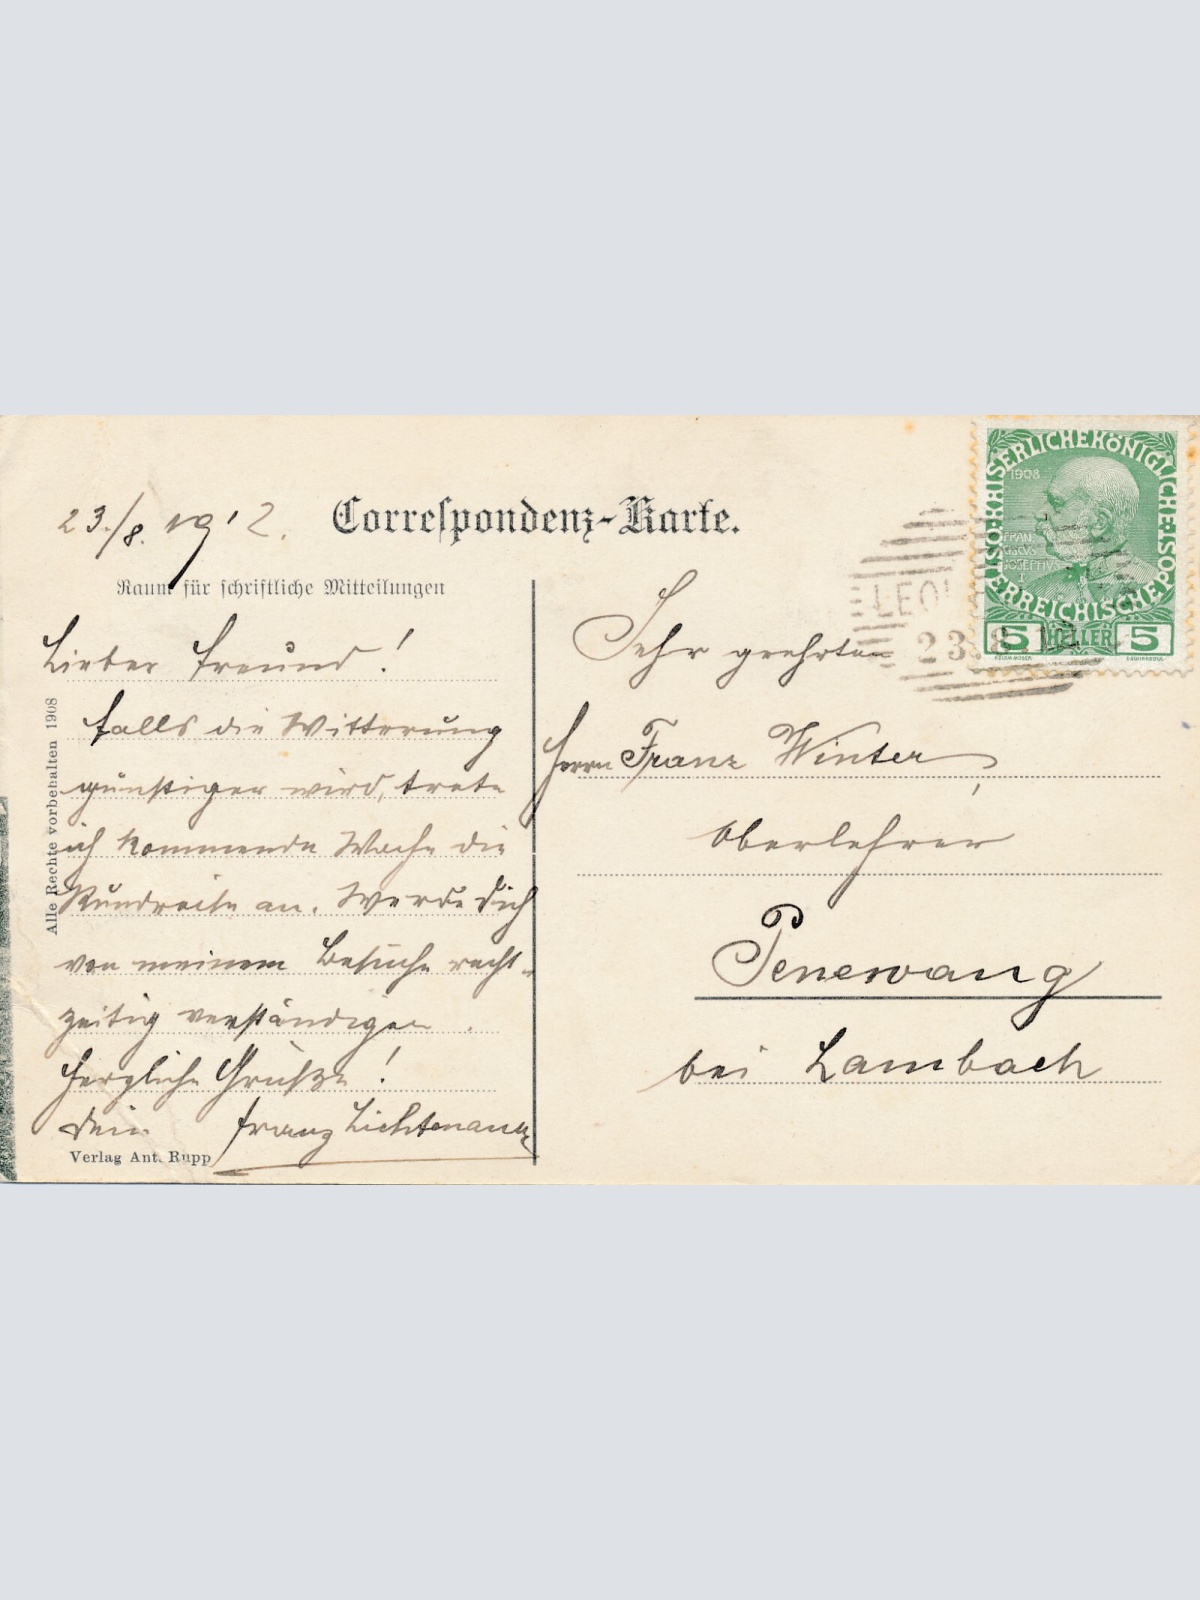 23./8. 1912.
Correspondenz-Karte.
Raum für schriftliche Mitteilungen
Lieber Freund!
Falls die Witterung
günstiger wird, trete
ich kommende Woche die
Rundreise an. Werde Dich
von meinem Besuche recht-
zeitig verständigen.
Herzliche Grüße!
Dein Franz Lichtmann
Verlag Ant. Rupp
Alle Rechte vorbehalten 1908
Sehr geehrten
Herrn Franz Winter,
Oberlehrer
Penewang
bei Lambach
KAISERLICHE KÖNIGLICHE ÖSTERREICHISCHE POST
1908
FRAN
CISCVS
JOSEPHVS
I
5 HELLER 5
LEO
23.8.12